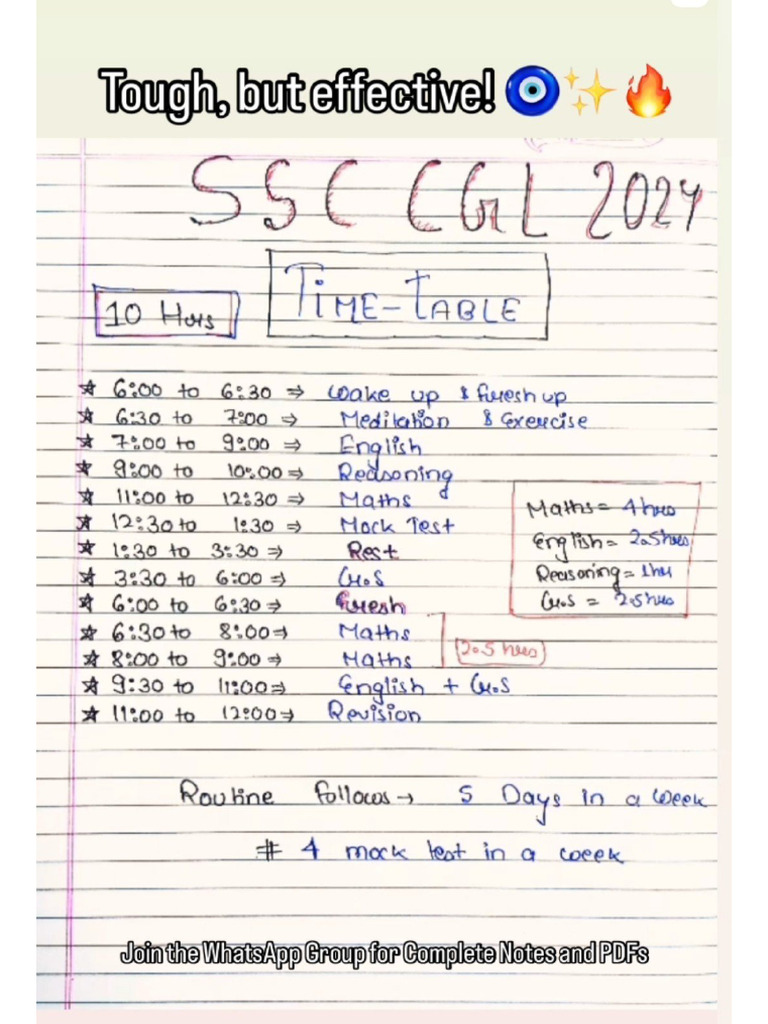 Tough, but effective! 🧿✨🔥
SSC CGL 2024
10 Hurs
TIME-TABLE
☆ 6:00 to 6:30 ⇒ Wake up & Fresh up
☆ 6:30 to 7:00 ⇒ Meditation & Exercise
☆ 7:00 to 9:00 ⇒ English
☆ 9:00 to 10:00 ⇒ Reasoning
☆ 11:00 to 12:30 ⇒ Maths
☆ 12:30 to 1:30 ⇒ Mock Test
☆ 1:30 to 3:30 ⇒ Rest
☆ 3:30 to 6:00 ⇒ G.S
☆ 6:00 to 6:30 ⇒ Fresh
☆ 6:30 to 8:00 ⇒ Maths
☆ 8:00 to 9:00 ⇒ Maths
2.5 hrs
☆ 9:30 to 11:00 ⇒ English + G.S
☆ 11:00 to 12:00 ⇒ Revision
Maths = 4 hrs
English = 2.5 hrs
Reasoning = 1 hr
G.S = 2.5 hrs
Routine Follows → 5 Days in a week
# 4 mock test in a week
Join the WhatsApp Group for Complete Notes and PDFs